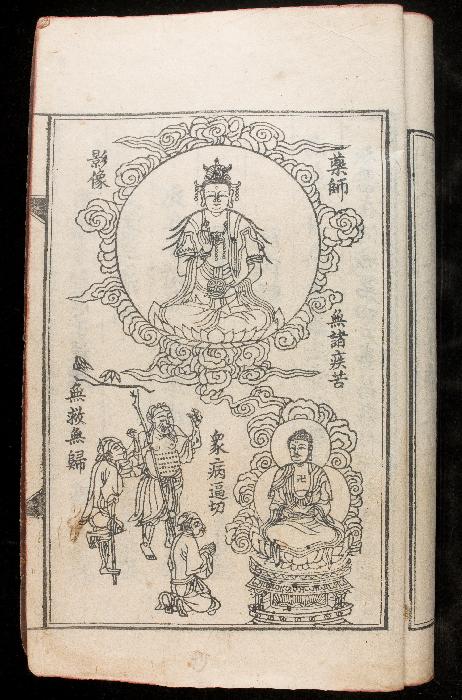 藥師
影像
無諸疾苦
衆病逼切
無救無歸
卍